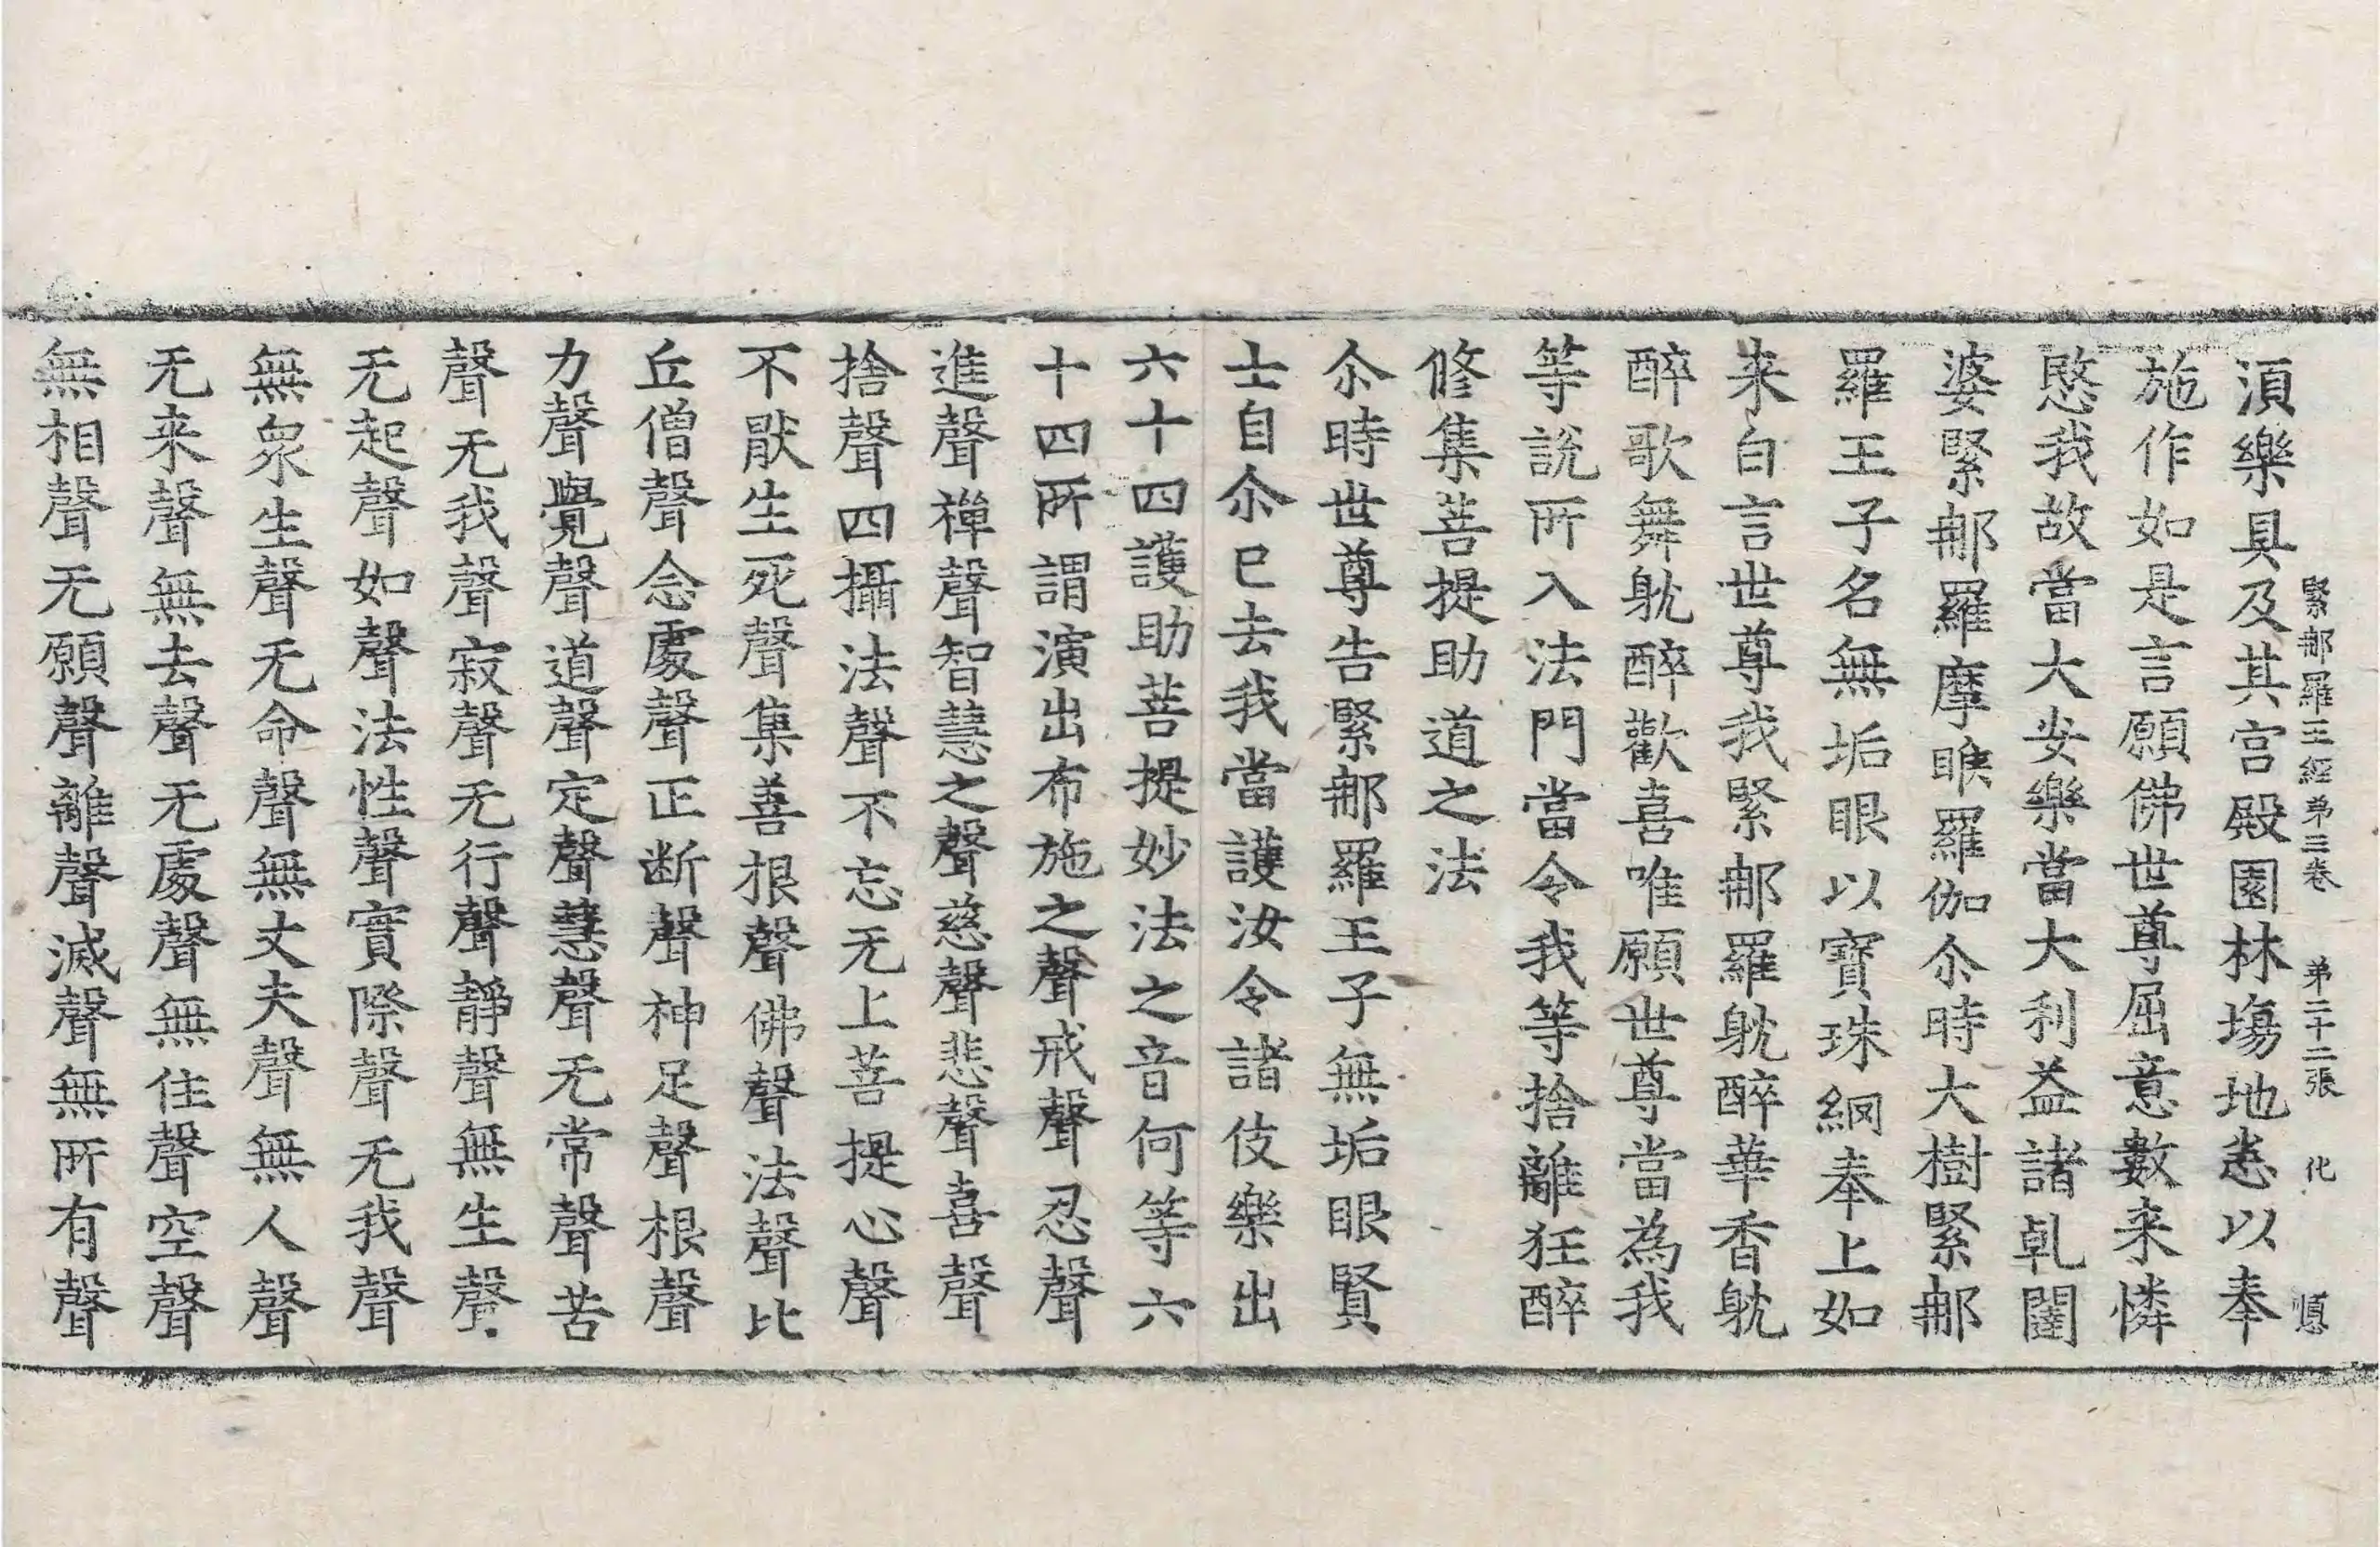 緊那羅王經第三卷　第二十二張　化　順
湏樂具及其宫殿園林塲地悉以奉
施作如是言願佛世尊屈意數来憐
愍我故當大安樂當大利益諸乹闥
婆緊那羅摩睺羅伽尒時大樹緊那
羅王子名無垢眼以寶珠網奉上如
来白言世尊我緊那羅躭醉華香躭
醉歌舞躭醉歡喜唯願世尊當為我
等說所入法門當令我等捨離狂醉
修集菩提助道之法
尒時世尊告緊那羅王子無垢眼賢
士自尒已去我當護汝令諸伎樂出
六十四護助菩提妙法之音何等六
十四所謂演出布施之聲戒聲忍聲
進聲禅聲智慧之聲慈聲悲聲喜聲
捨聲四攝法聲不忘无上菩提心聲
不猒生死聲集善根聲佛聲法聲比
丘僧聲念處聲正断聲神足聲根聲
力聲覺聲道聲定聲慧聲无常聲苦
聲无我聲寂聲无行聲靜聲無生聲
无起聲如聲法性聲實際聲无我聲
無衆生聲无命聲無丈夫聲無人聲
无来聲無去聲无處聲無住聲空聲
無相聲无願聲離聲滅聲無所有聲